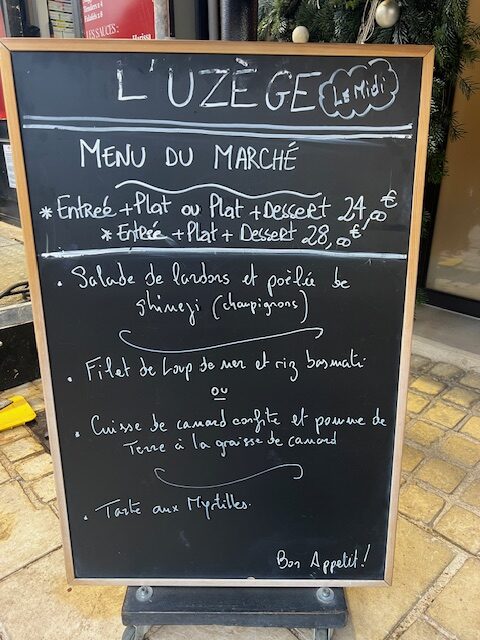 Tenders x 6
Falafels x 6
LES SAUCES :
Harissa
L'UZÈGE
Le Midi
MENU DU MARCHÉ
* Entrée + Plat ou Plat + Dessert 24,00€
* Entrée + Plat + Dessert 28,00€
• Salade de lardons et poêlée de
shimeji (champignons)
• Filet de Loup de mer et riz basmati
ou
• Cuisse de canard confite et pomme de
Terre à la graisse de canard
• Tarte aux Myrtilles.
Bon Appetit!